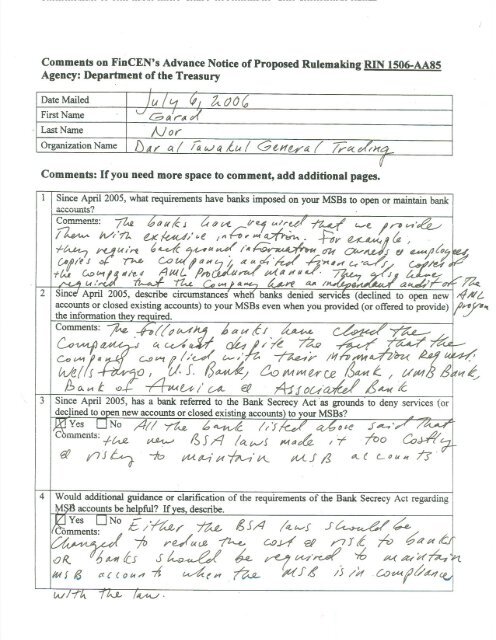 Comments on FinCEN's Advance Notice of Proposed Rulemaking RIN 1506-AA85
Agency: Department of the Treasury
Date Mailed July 6, 2006
First Name Garad
Last Name Nor
Organization Name Dar al Tawakul General Trading
Comments: If you need more space to comment, add additional pages.
1 Since April 2005, what requirements have banks imposed on your MSBs to open or maintain bank
accounts?
Comments: The banks have required that we provide
Them with extensive information. For example,
they require background information on Owners & employees,
copies of the company's audited financials, copies of
the companies AML Procedural manual. They also have
required that The Company have an independent audit of The
AML
program
2 Since April 2005, describe circumstances when banks denied services (declined to open new
accounts or closed existing accounts) to your MSBs even when you provided (or offered to provide)
the information required.
Comments: The following banks have closed the
Company's account despite the fact that the
company complied with their information Request:
Wells Fargo, U.S. Bank, Commerce Bank, UMB Bank,
Bank of America & Associated Bank
3 Since April 2005, has a bank referred to the Bank Secrecy Act as grounds to deny services (or
declined to open new accounts or closed existing accounts) to your MSBs?
Yes No All The bank listed above said That
Comments: the new BSA laws made it too Costly
& risky to maintain MSB accounts
4 Would additional guidance or clarification of the requirements of the Bank Secrecy Act regarding
MSB accounts be helpful? If yes, describe.
Yes No Either the BSA laws should be
Comments: Changed to reduce the cost & risk to banks
OR banks should be required to maintain
MSB accounts when the MSB is in compliance
with the law.